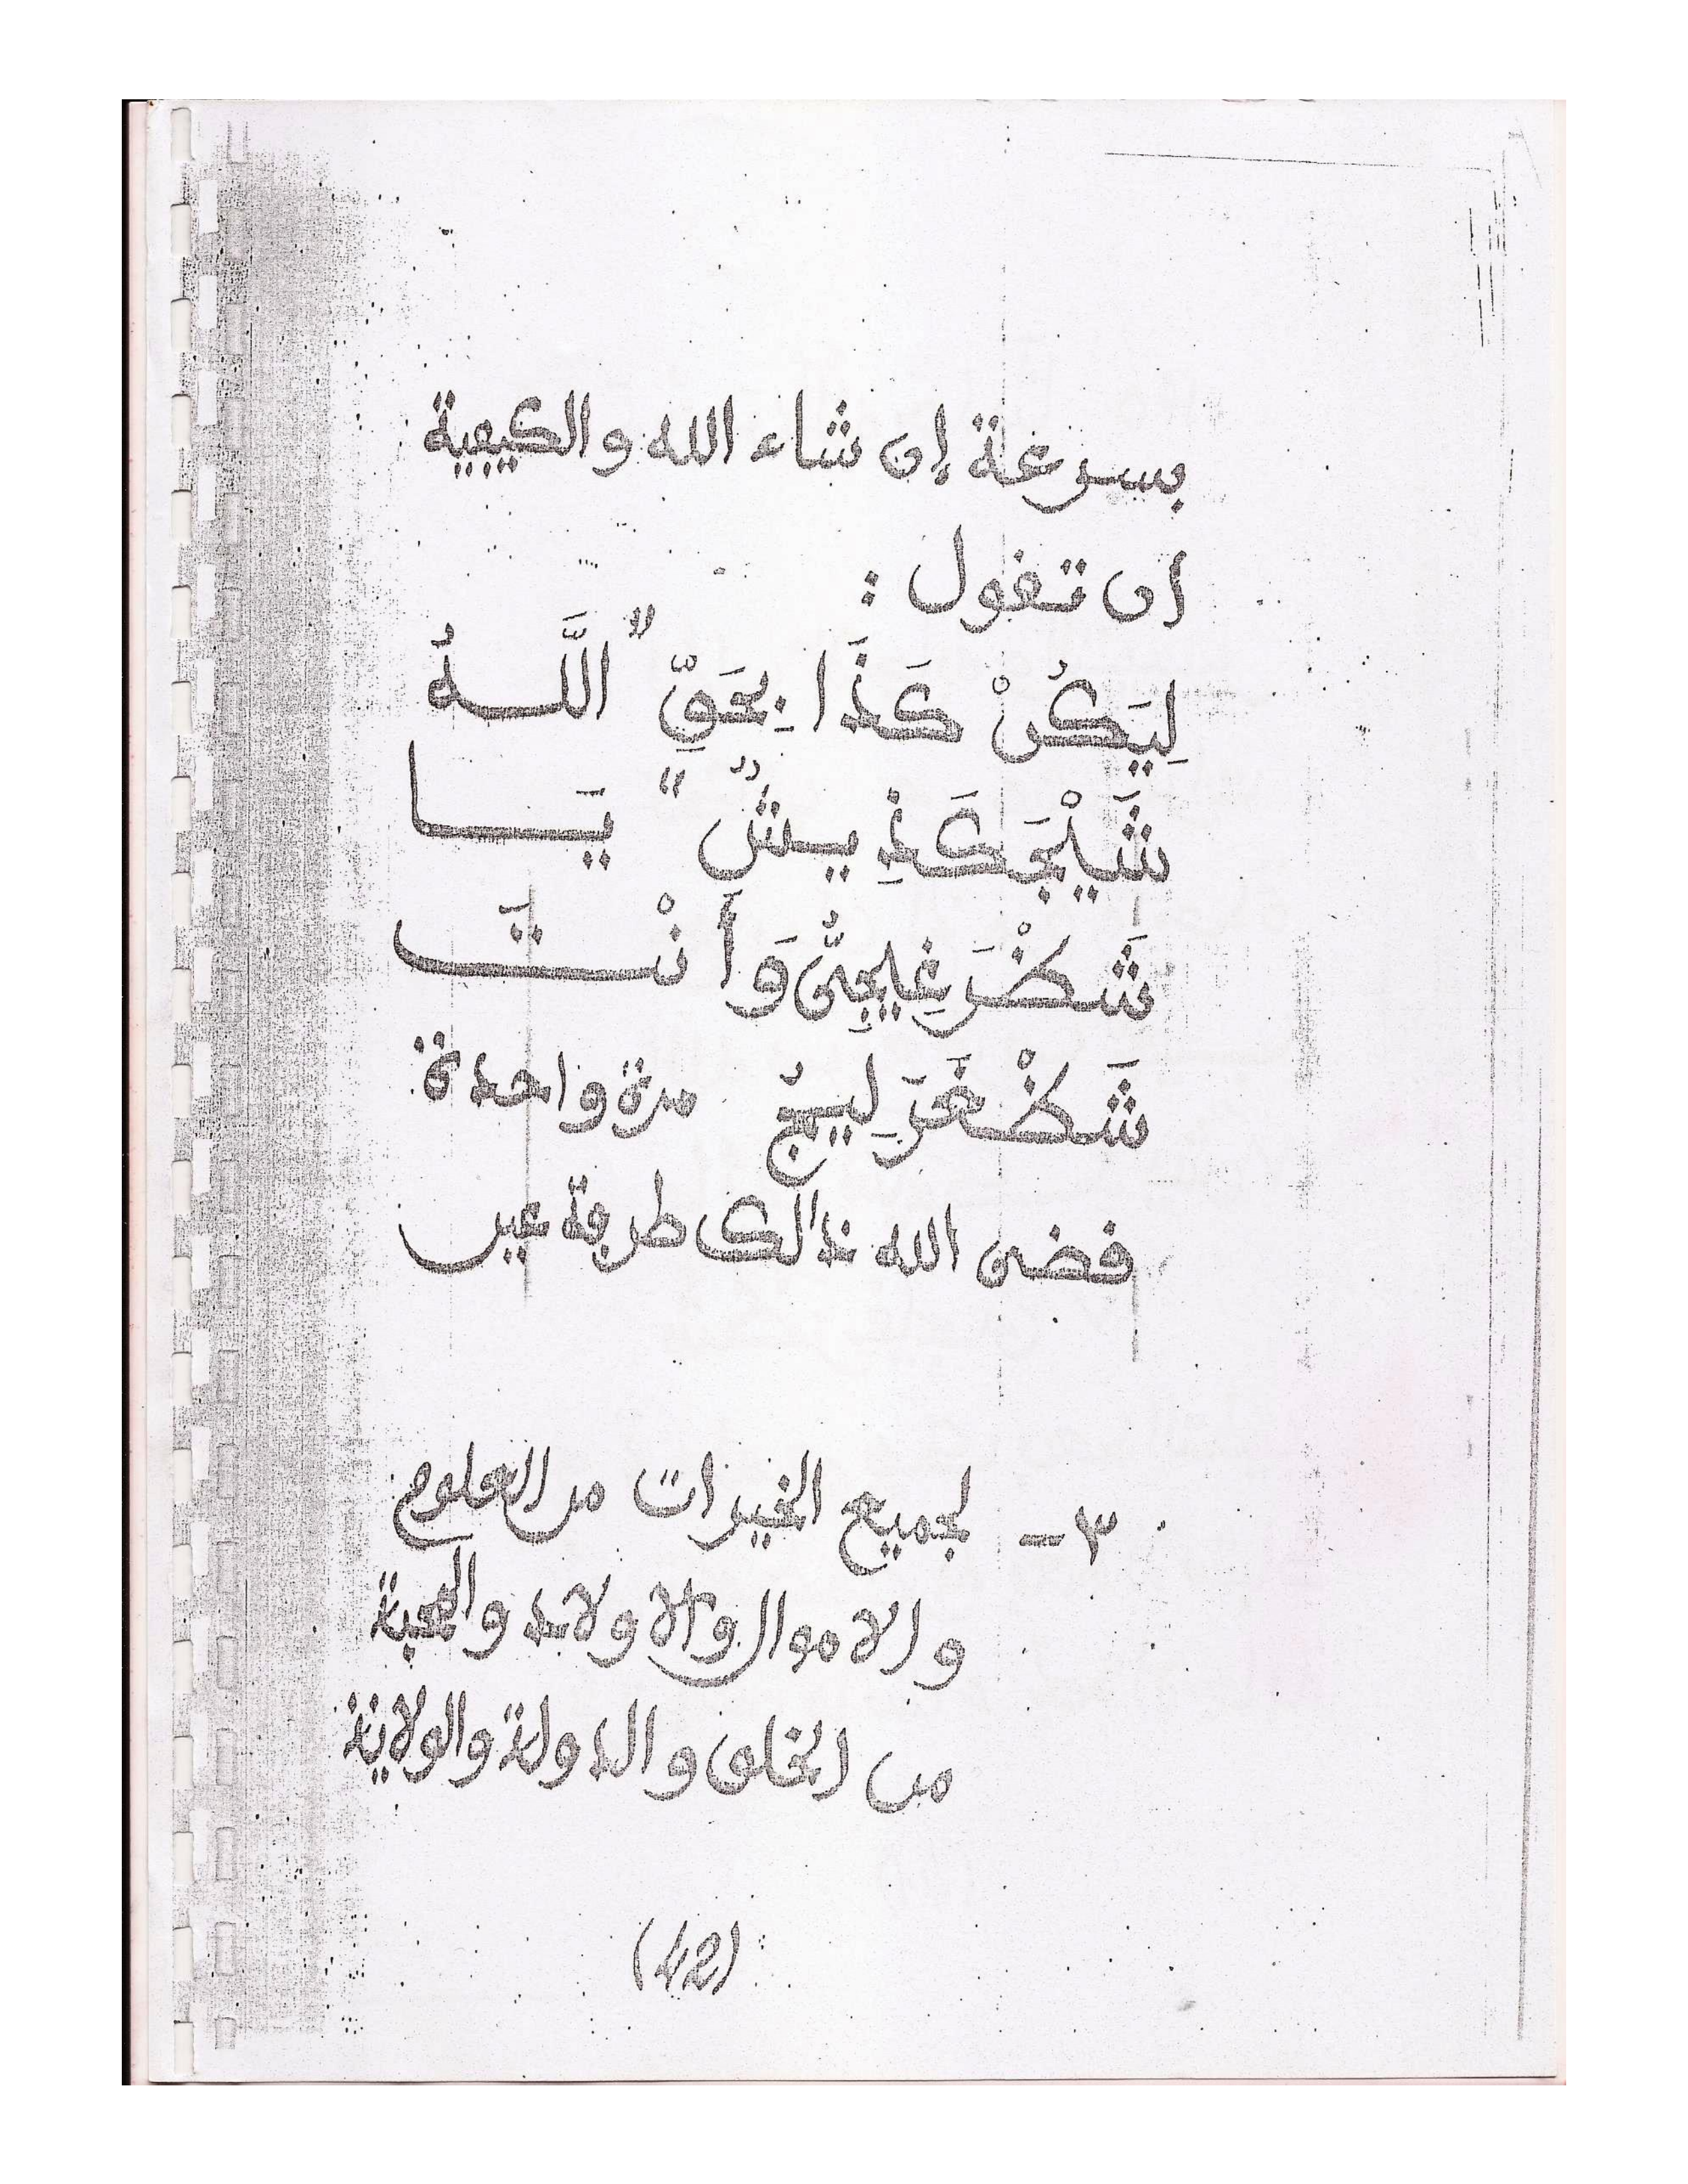 بسرعة إن شاء الله والكيفية
ان تقول :
لِيَكُنْ كَذَا بِحَقِّ " اللَّـهُ
شَيْلَجَكَذِ يـشٌ " يَـــا
شَكْرَغِيلِجِىُّ وَأَنْتَ
شَكْغَرَلِيـجٌ مرة واحدة
قضى الله ذالك طرفة عين
٣ – لجميع الخيرات من العلوم
والاموال والاولاد والمحبة
من الخلق والدولة والولاية
(42)